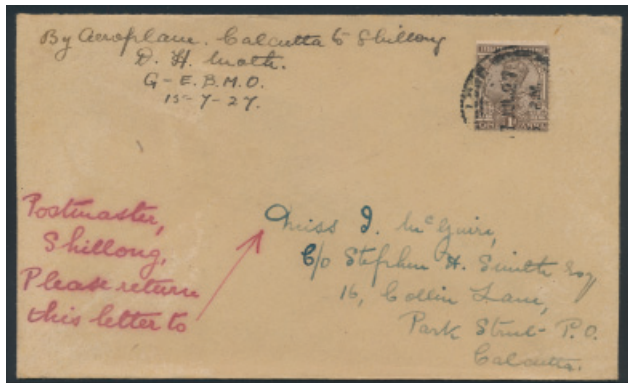 By Aeroplane. Calcutta to Shillong
D. H. Moth.
G-E.B.M.O.
15-7-27.
Postmaster,
Shillong,
Please return
this letter to
Miss I. McGuire,
C/o Stephen H. Smith Esq
16, Collin Lane,
Park Street P.O.
Calcutta.